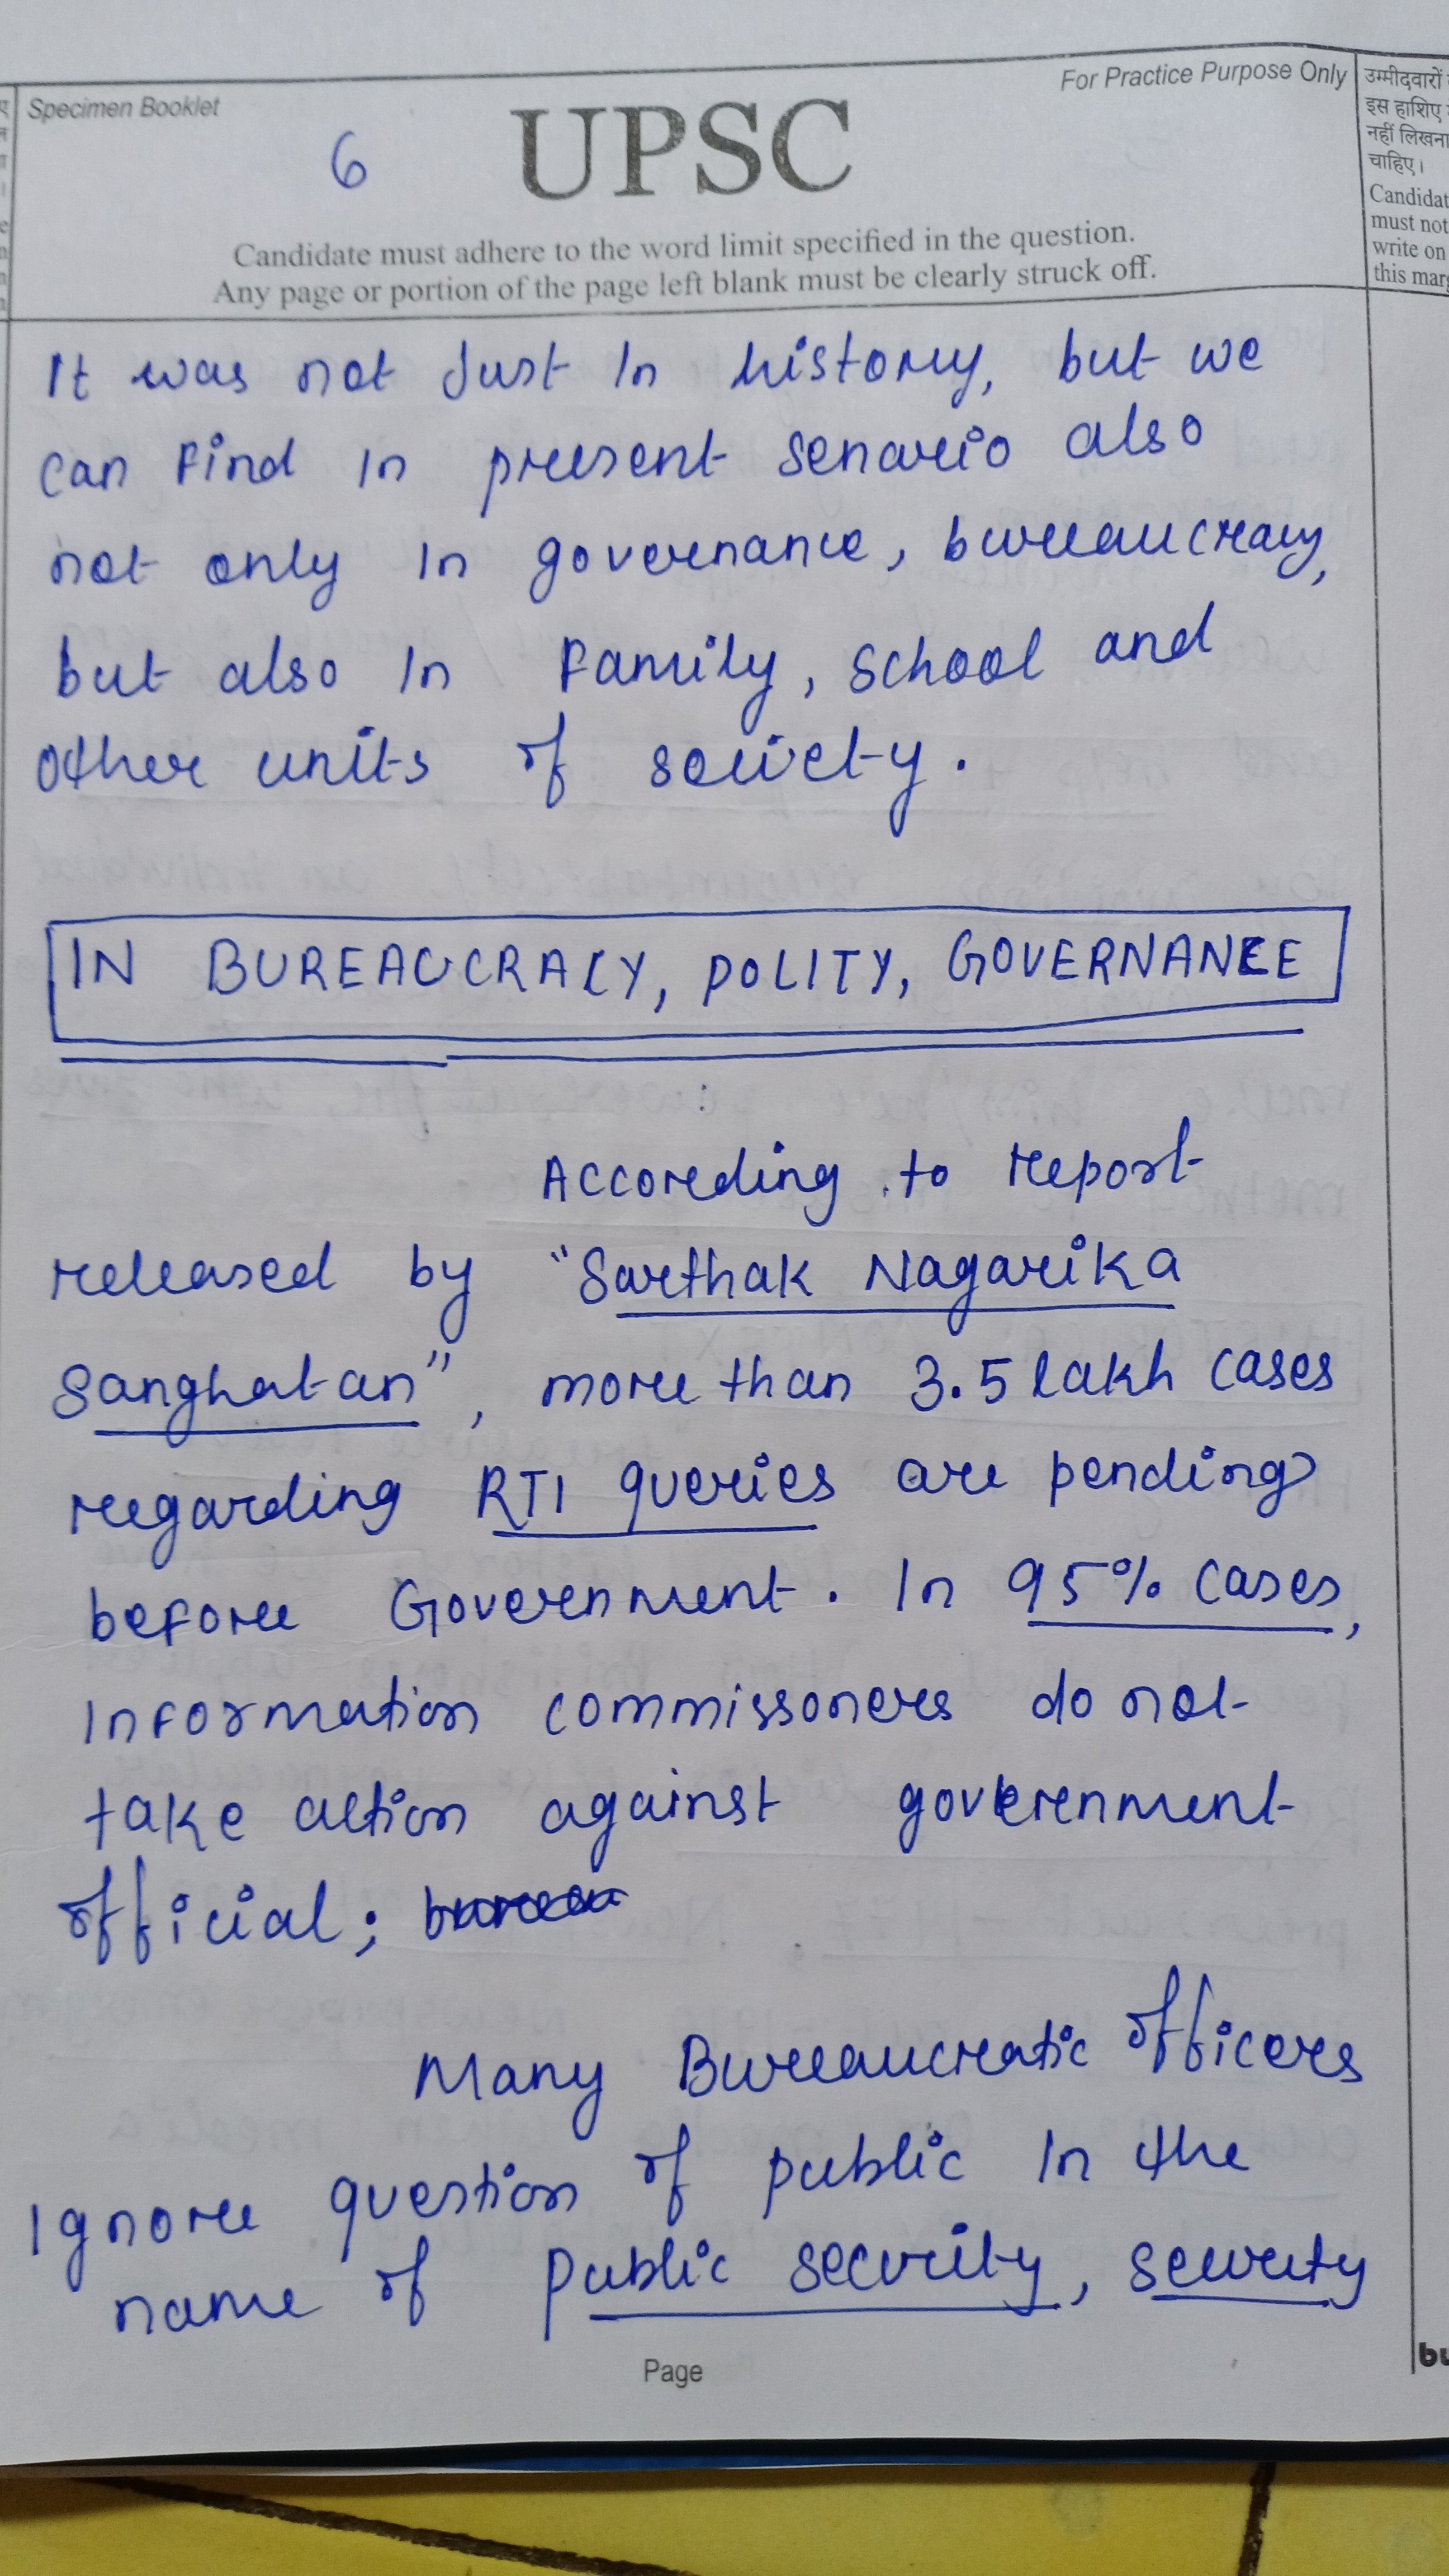 Specimen Booklet
For Practice Purpose Only
6
UPSC
Candidate must adhere to the word limit specified in the question.
Any page or portion of the page left blank must be clearly struck off.
उम्मीदवारों
इस हाशिए
नहीं लिखना
चाहिए।
Candidat
must not
write on
this marg
It was not Just In history, but we
can find In present senario also
not only In governance, bureaucracy,
but also In Family, school and
other units of society.
IN BUREAUCRACY, POLITY, GOVERNANCE
According to report
released by "Sarthak Nagarika
Sanghatan", more than 3.5 lakh cases
regarding RTI queries are pending
before Government. In 95% cases,
Information commissoners do not
take action against government
official;
Many Bureaucratic officers
Ignore question of public In the
name of public security, security
Page
bu